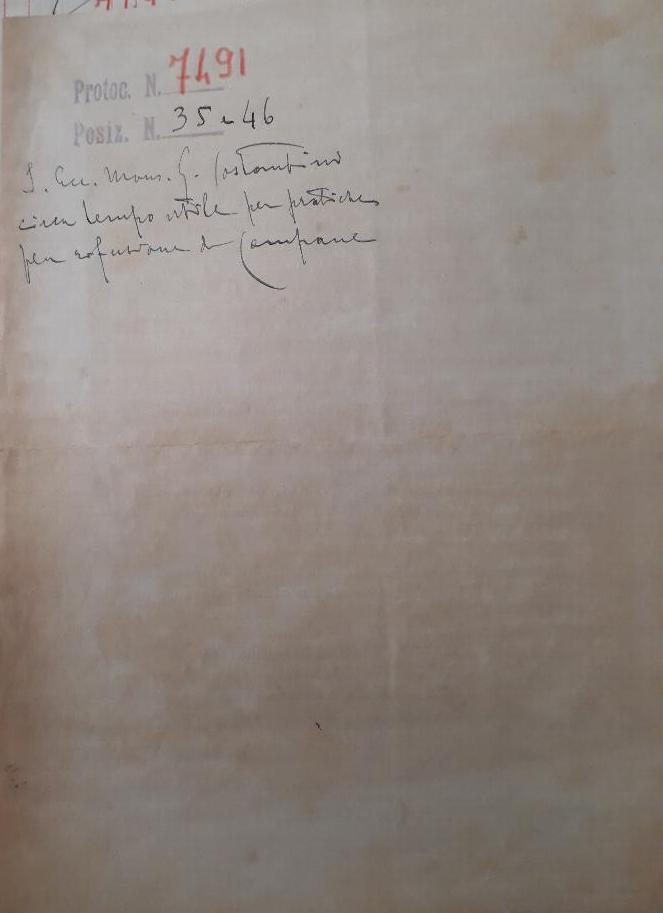 Protoc. N. 7491
Posiz. N. 35-46
S. Ecc. Mons. G. Costantini
circa tempo utile per pratiche
per rifusione di Campane